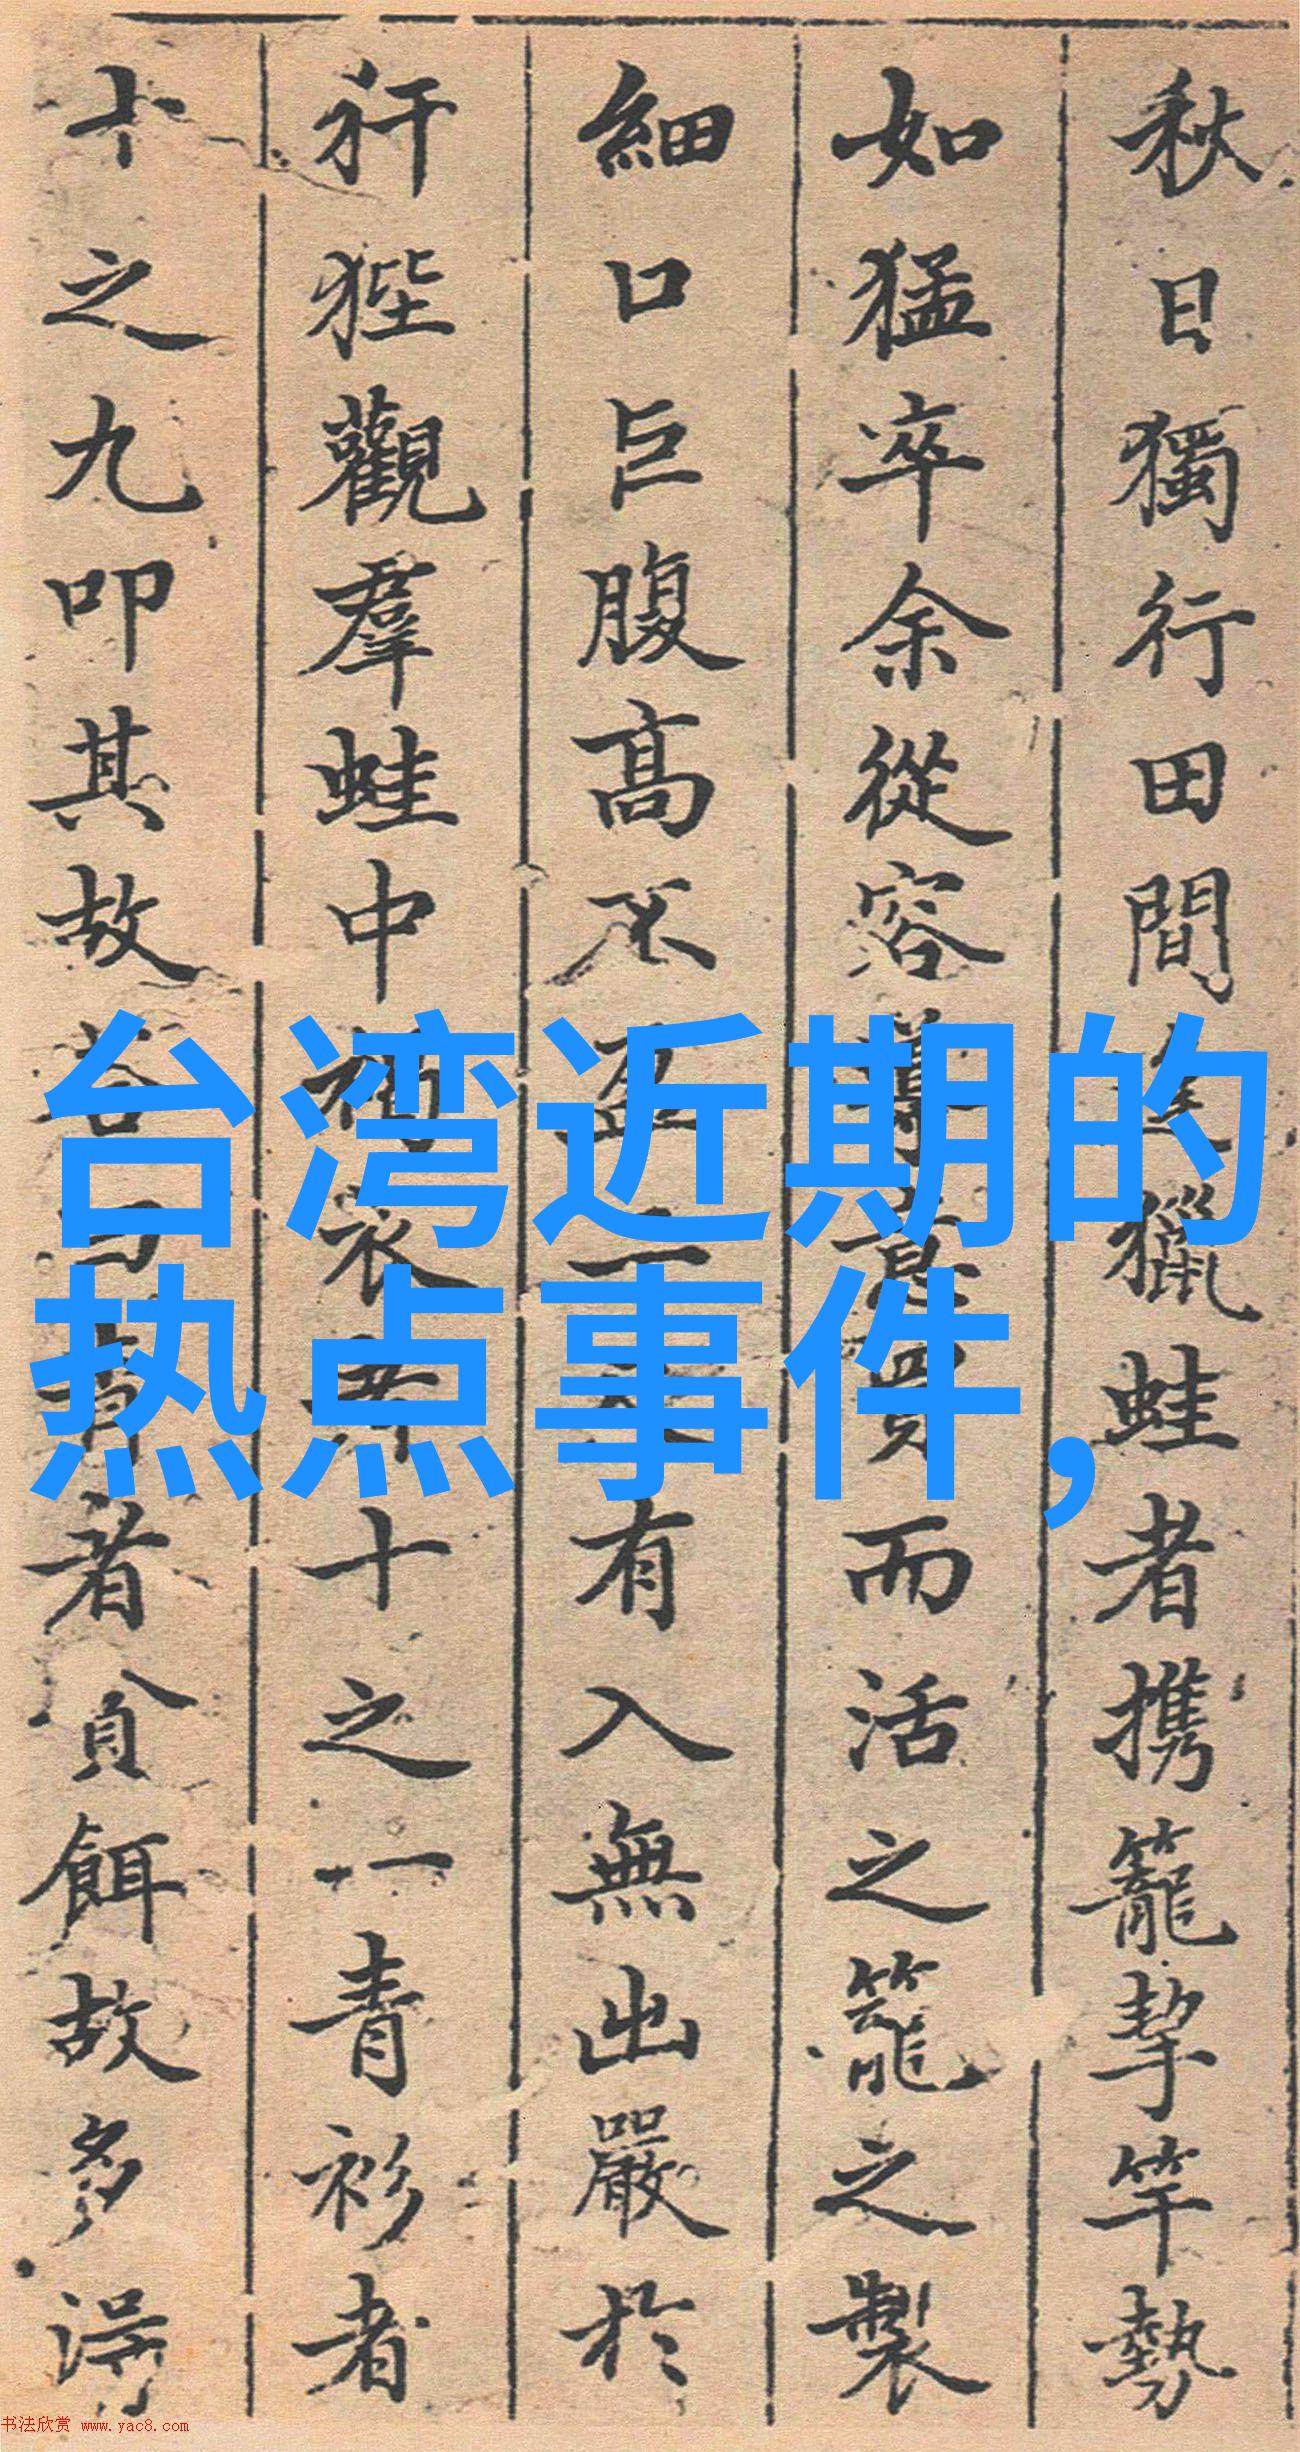 秋日獨行田間 獵蛙者携籠挈竿勢
如猛卒余從容 意 而活之籠之製
細口巨腹高不盈一 有入無出嚴於
犴狴觀羣蛙中 衣 十之一青衫者
十之九叩其故答曰青者貪餌故多得
台湾近期的
热点事件，
书法欣赏 www.yac8.com